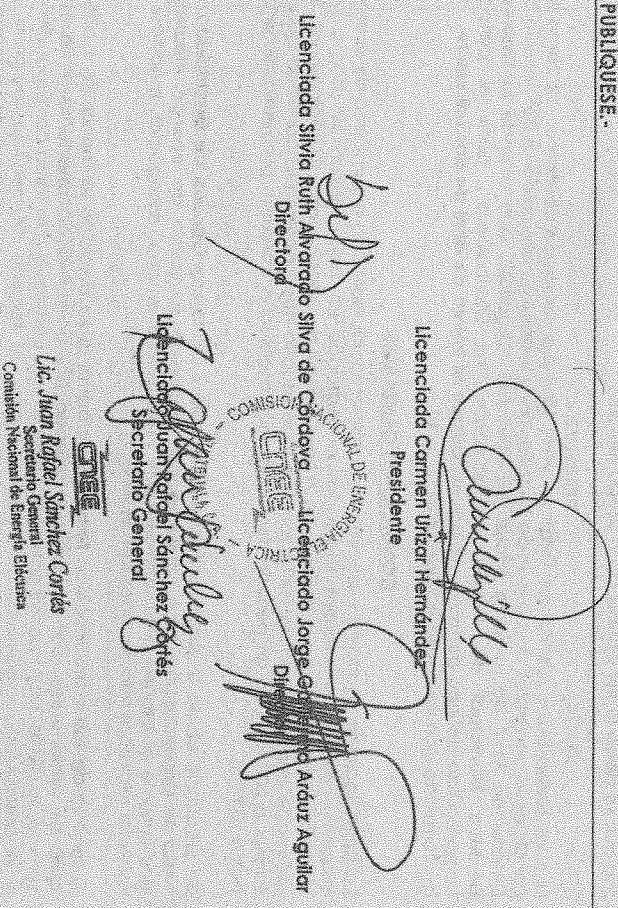 PUBLÍQUESE.-
Licenciada Carmen Urízar Hernández
Presidente
Licenciada Silvia Ruth Alvarado Silva de Córdova
Directora
Licenciado Jorge Aráuz Aguilar
COMISION NACIONAL DE ENERGIA ELECTRICA
CNEE
Licenciado Juan Rafael Sánchez Cortés
Secretario General
CNEE
Lic. Juan Rafael Sánchez Cortés
Secretario General
Comisión Nacional de Energía Eléctrica